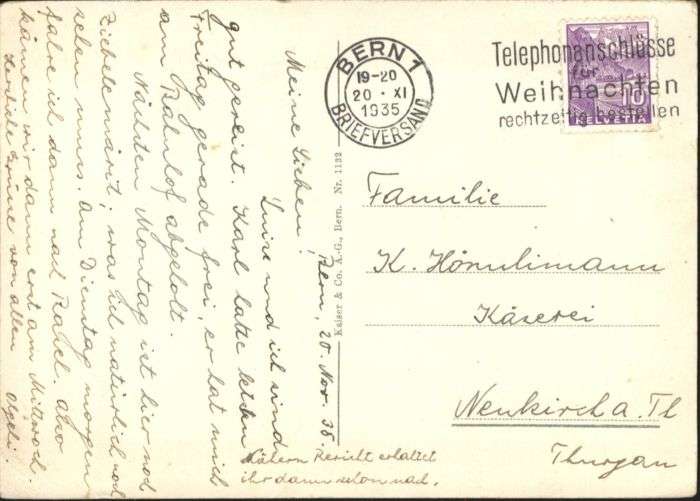 Bern, 20. Nov. 35.
Meine Lieben!
Luise und ich sind
gut gereist. Karl hatte letzten
Freitag gerade frei, er hat mich
am Bahnhof abgeholt.
Nächsten Montag ist hier noch
Ziebelemärit, was ich natürlich noch
sehen muss. Am Dienstag morgen
fahre ich dann nach Basel. Also
kämen wir dann erst am Mittwoch.
Herzliche Grüsse von allen
Nähern Bericht erhaltet
ihr dann schon noch.
Kaiser & Co. A.-G., Bern. Nr. 1132
BERN 1
19-20
20 · XI
1935
BRIEFVERSAND
Telephonanschlüsse
für
Weihnachten
rechtzeitig bestellen
10
HELVETIA
Familie
K. Hörnlimann
Käserei
Neukirch a. Th
Thurgau